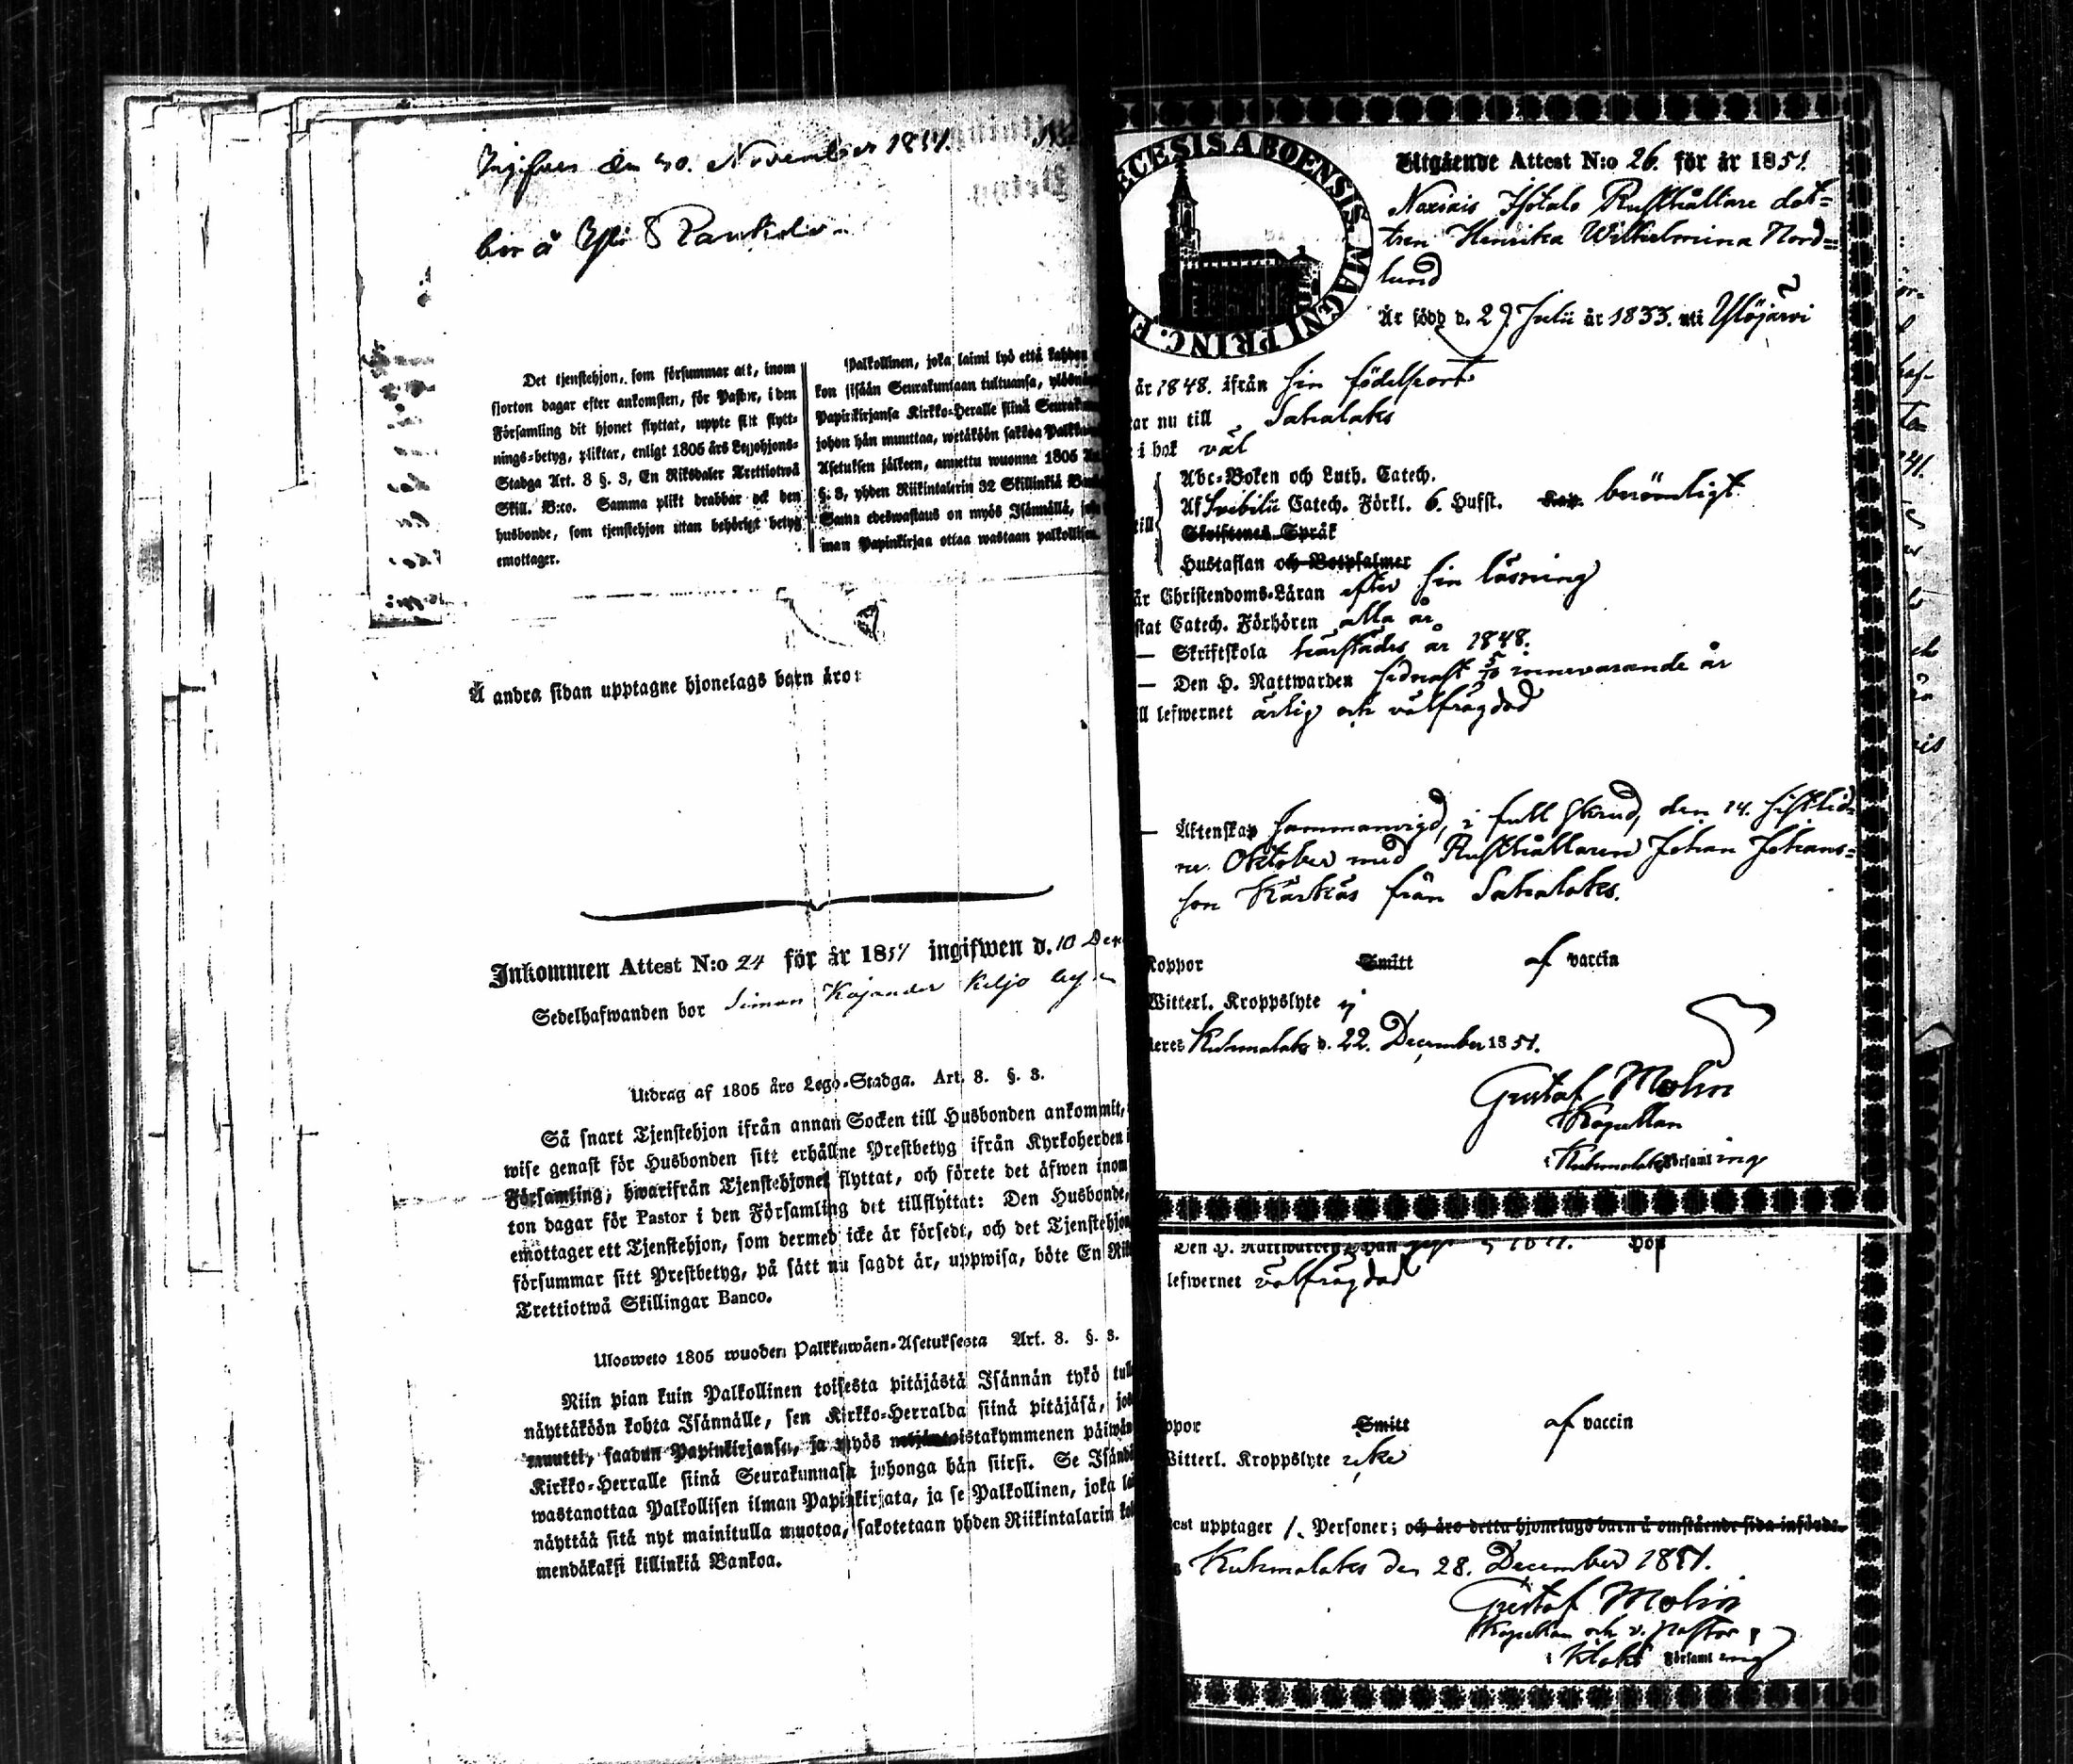 Ingifven den 30. November 1851.
bor å
Det tjenstehjon, som försummar att, inom
fjorton dagar efter ankomsten, för Pastor, i den
Församling dit hjonet flyttat, uppte sitt flytt-
nings-betyg, pliktar, enligt 1805 års Legohjons-
Stadga Art. 8 §. 3, En Riksdaler Trettiotwå
Skill. B:co. Samma plikt drabbar ock den
husbonde, som tjenstehjon utan behörigt betyg
emottager.
Palkollinen, joka laimi lyö että kahden
kon sisään Seurakuntaan tultuansa, ylösnä
Papinkirjansa Kirkko-Heralle siinä Seurakun
johon hän muuttaa, wetäköön sakkoa Palkka
Asetuksen jälkeen, annettu wuonna 1805
§. 3, yhden Riikintalerin 32 Skillinkiä Banko
Sama edeswastaus on myös Isännällä, joka
man Papinkirjaa ottaa wastaan palkollisen.
Å andra sidan upptagne hjonelags barn äro:
Inkommen Attest N:o 24 för år 1851 ingifwen d. 10 Dec
Sedelhafwanden bor Simon Kajander Keljo
Utdrag af 1805 års Lego-Stadga. Art. 8. §. 3.
Så snart Tjenstehjon ifrån annan Socken till Husbonden ankommit,
wise genast för Husbonden sitt erhållne Prestbetyg ifrån Kyrkoherden i
Församling, hwarifrån Tjenstehjonet flyttat, och förete det äfwen inom
ton dagar för Pastor i den Församling det tillflyttat: Den Husbonde,
emottager ett Tjenstehjon, som dermed icke är försedt, och det Tjenstehjon
försummar sitt Prestbetyg, på sätt nu sagdt är, uppwisa, böte En Rik
Trettiotwå Skillingar Banco.
Ulosweto 1805 wuoden Palkkawäen-Asetuksesta Art. 8. §. 3.
Niin pian kuin Palkollinen toisesta pitäjästä Isännän tykö tull
näyttäköön kohta Isännälle, sen Kirkko-Herralda siinä pitäjäsä, jos
muutti, saadun Papinkirjansa, ja myös neljäntoistakymmenen päiwän
Kirkko-Herralle siinä Seurakunnasa johonga hän siirsi. Se Isändä
wastanottaa Palkollisen ilman Papinkirjata, ja se Palkollinen, joka lai
näyttää sitä nyt mainitulla muotoa, sakotetaan yhden Riikintalarin kol
mendäkaksi killinkiä Bankoa.
ECESIS ABOENSIS. MAGNI PRINC. F
Utgående Attest N:o 26. för år 1851.
Noxiais Isotalo Rusthållare dot=
tren Henrika Wilhelmina Nord=
lund
Är född d. 29 Julii år 1833. uti Ylöjärvi
år 1848. ifrån sin födelseort
ar nu till Sahalaks
i bok väl
Abc-Boken och Luth. Catech.
Af Svebilii Catech. Förkl. 6. Hufst. Kap. berömligt
till
Skriftenes Språk
Hustaflan och Botpsalmer
är Christendoms-Läran efter sin läsning
stat Catech. Förhören alla år
— Skriftskola härstädes år 1848.
— Den H. Nattwarden sednast 5/10 innevarande år
ll lefwernet ärlig och välfrägdad
— Äktenskap sammanvigd, i full skrud, den 14. sistlid-
ne Oktober med Rusthållaren Johan Johans=
son Kärkäs från Sahalaks.
Koppor Smitt af vaccin
Witterl. Kroppslyte ej
teres Kuhmalaks d. 22. December 1851.
Gustaf Molin
Kapellan
i Kuhmalaks Församling
Den H. Nattwarden 18
lefwernet välfrägdad
ppor Smitt af vaccin
Witterl. Kroppslyte icke
est upptager 1. Personer; och äro detta hjonelags barn å omstående sida införde.
Kuhmalaks den 28. December 1851.
Gustaf Molin
Kapellan och v. Pastor
i Klaks Församling